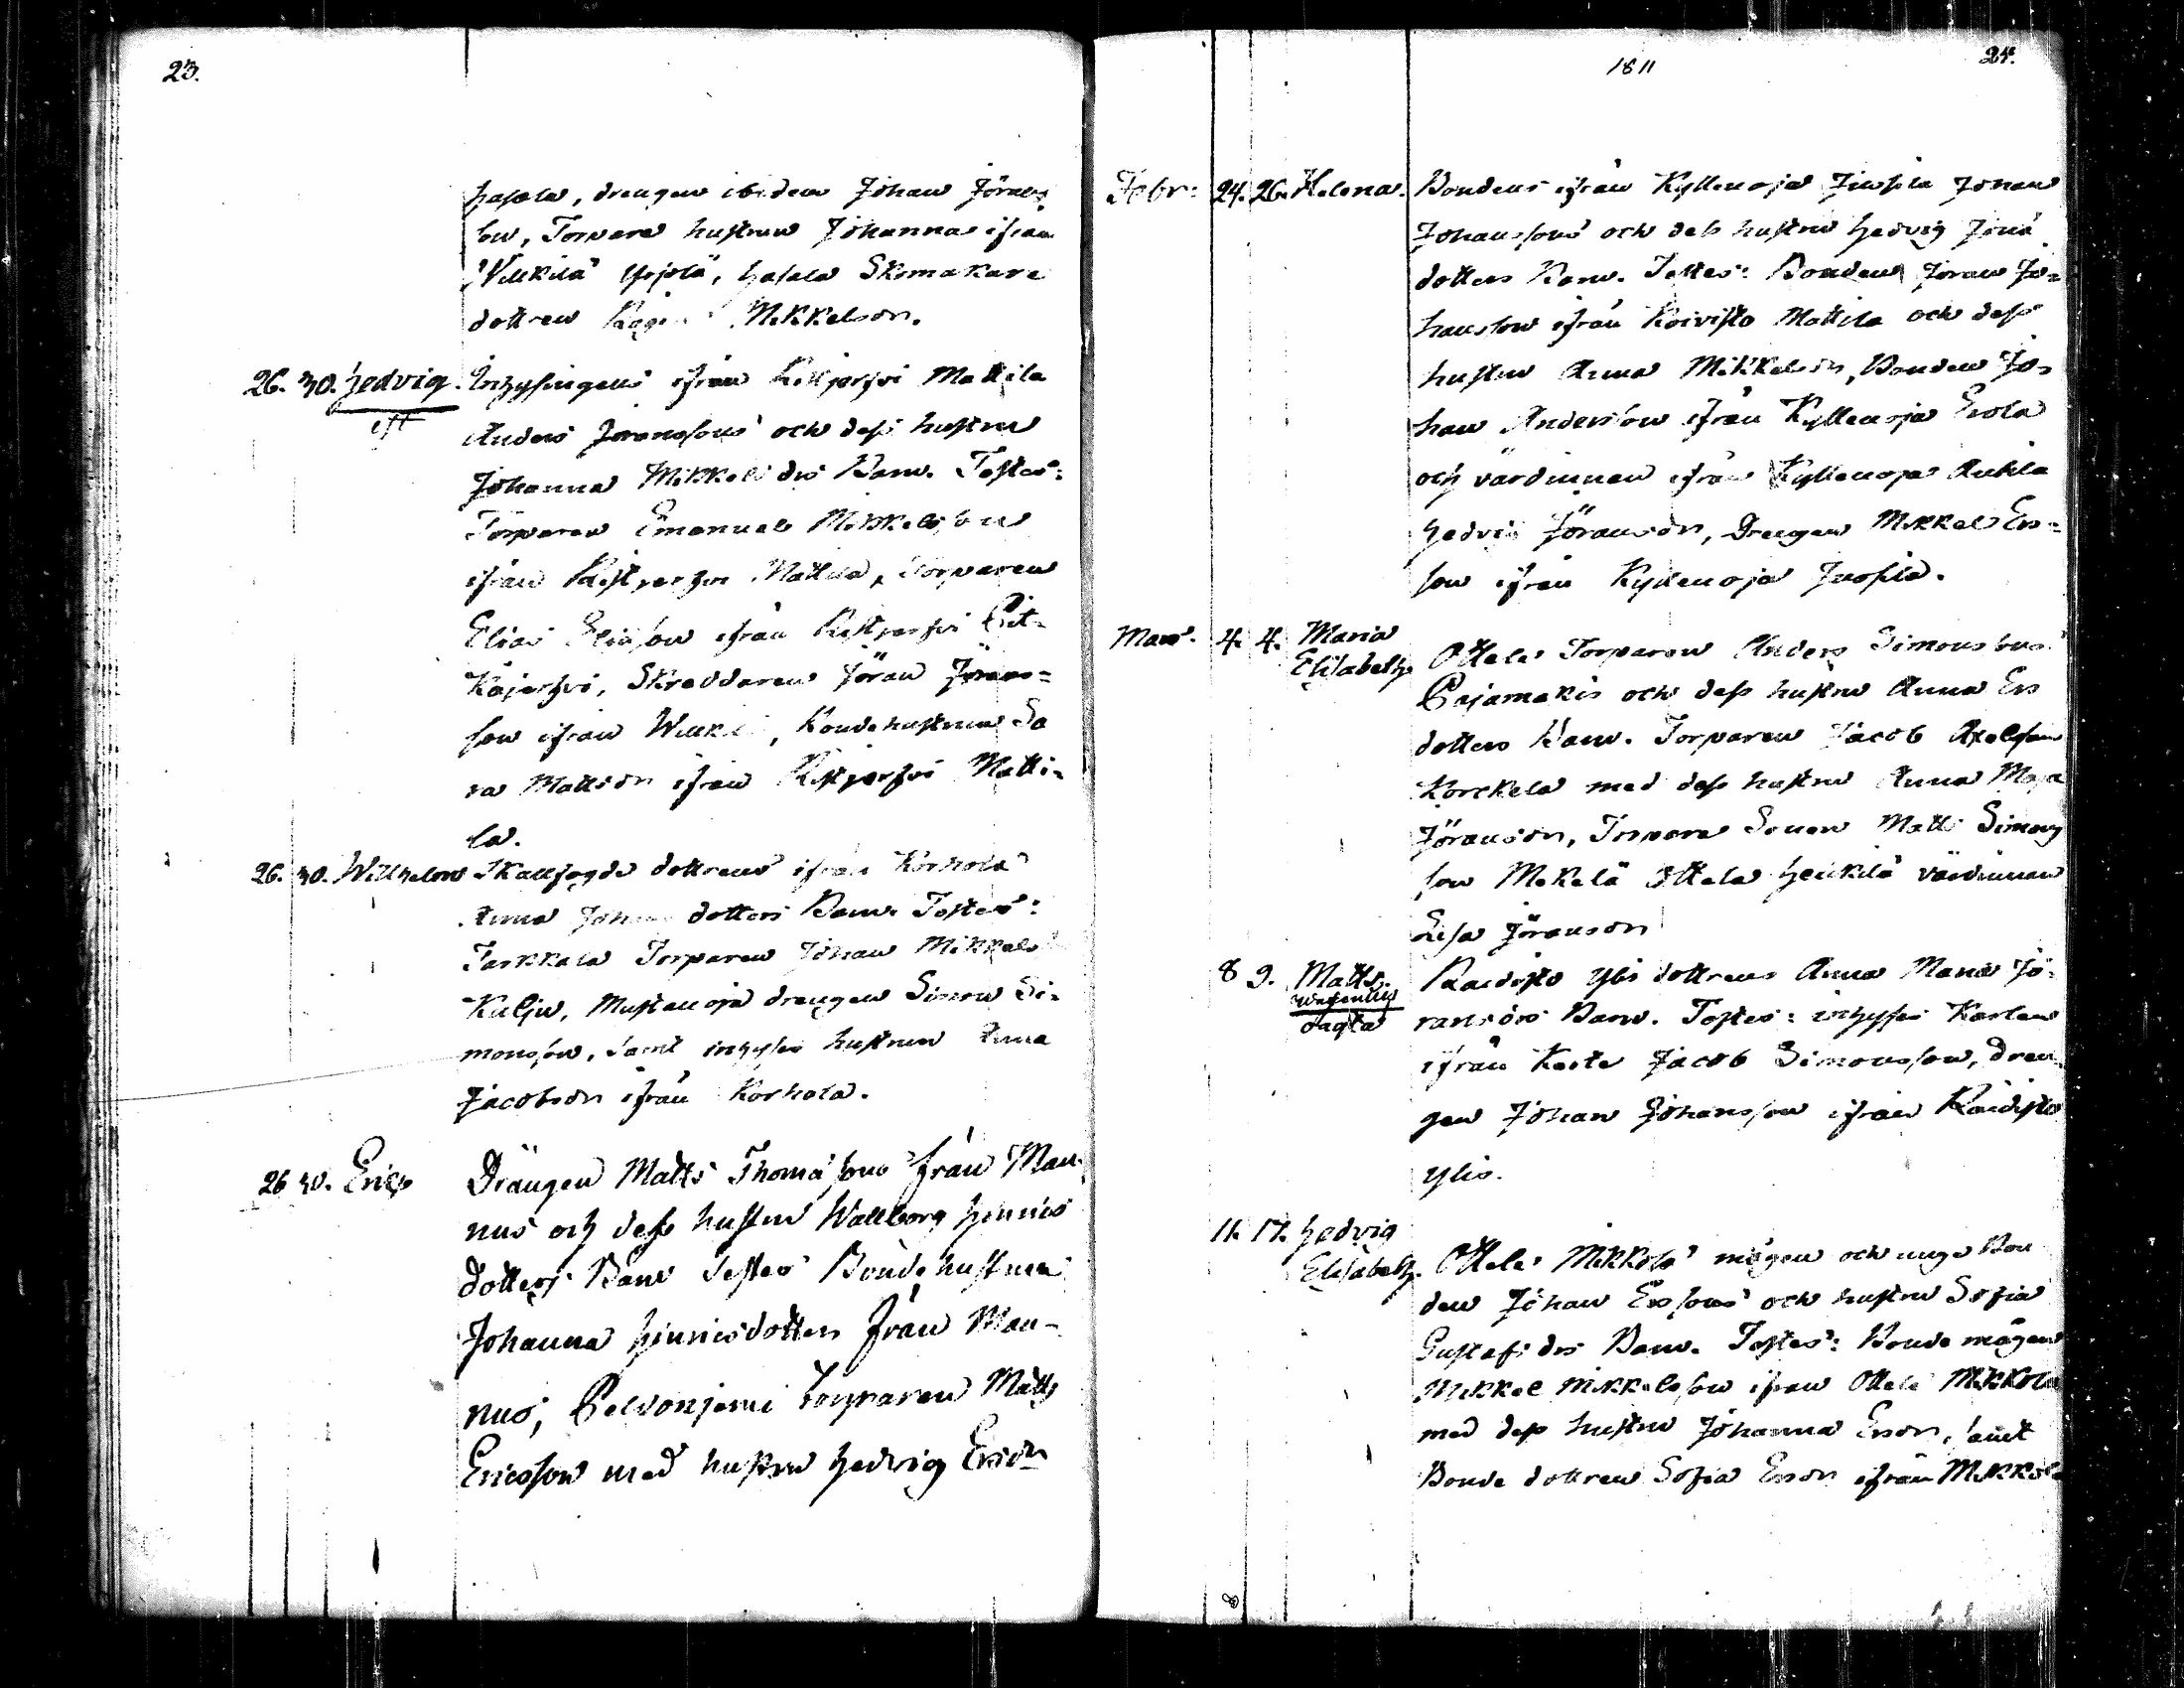 23.
hasala, drengen ibidem Johan Jörans
son, Torpare hustrun Johanna ifrån
Willkilä Yrjolä, hasala Skomakare
dottren Mikkelsdr.
26. 30. Hedvig. Inhysingens ifrån Ristjerfvi Mattila
Anders Joranssons och dess hustru
Johanna Mikkels drs Barn. Testes:
Torparen Emanuel Mikkelsson
ifrån Ristjerfvi Mattila, Torparen
Elias Eliasson ifrån Ristjerfvi Pit-
käjerfvi, Skreddaren Jöran Jörans=
son ifrån, Bondehustrun Sa
ra Mattsdr ifrån Ristjerfvi Matti-
la.
26. 30. Wilhelm Skallfogde dottrens ifrån Korhola
Anna dotters Barn. Testes:
Torparen Johan Mikkels
Kulju, Mustanoja drengen Simon Si-
monsson, samt inhyses hustrun Anna
Jacobsdr ifrån Korhola.
26 30. Eric Drängen Matts Thomassons från Man-
nus och dess hustru Wallborg Hinrics
dotters Barn Testes Bondehustrun
Johanna Hinricsdotter från Man-
nus, Peldonjemi Torparen Matts
Ericsson med hustru Hedvig Ersdr
1811
24.
Febr: 24. 26. Helena. Bondens ifrån Kyllenoja Jussila Johan
Johanssons och dess hustru Hedvig Jöns
dotters Barn. Testes: Bonden Joran Jo=
hansson ifrån Koivisto Mattila och dess
hustru Anna Mikkelsdr, Bonden Jo=
han Andersson ifrån Kyllenoja Erola
och värdinnan ifrån Kyllenoja Anhila
Hedvig Jöransdr, Drengen Mikkel Ers=
son ifrån Kyllenoja Jussila.
Mars. 4. 4. Maria
Elisabeth. Ottela Torparen Anders Simonssons
Pajamäkis och dess hustru Anna Ers
dotters Barn. Torparen Jacob Axelsson
Korckela med dess hustru Anna Maja
Jöransdr, Torpare Sonen Matts Simons
son Mekelä Ottela Heikilä värdinnan
Lisa Jöransdr
8 9. Matts.
oägta Raidisto Ylis dottrens Anna Maria Jö-
ransdrs Barn. Testes: inhyses Karlen
ifrån Keste Jacob Simonsson, Dren-
gen Johan Johansson ifrån Raidisto
Ylis.
11. 17. Hedvig
Elisabeth. Ottela Mikkola mågen och unga Bon
den Johan Erssons och hustru Sofia
Gustafs drs Barn. Testes: Bonde mågen
Mikkel Mikkelsson ifrån Ottela Mikkola
med dess hustru Johanna Ersdr, samt
Bonde dottren Sofia Ersdr ifrån Mikkola